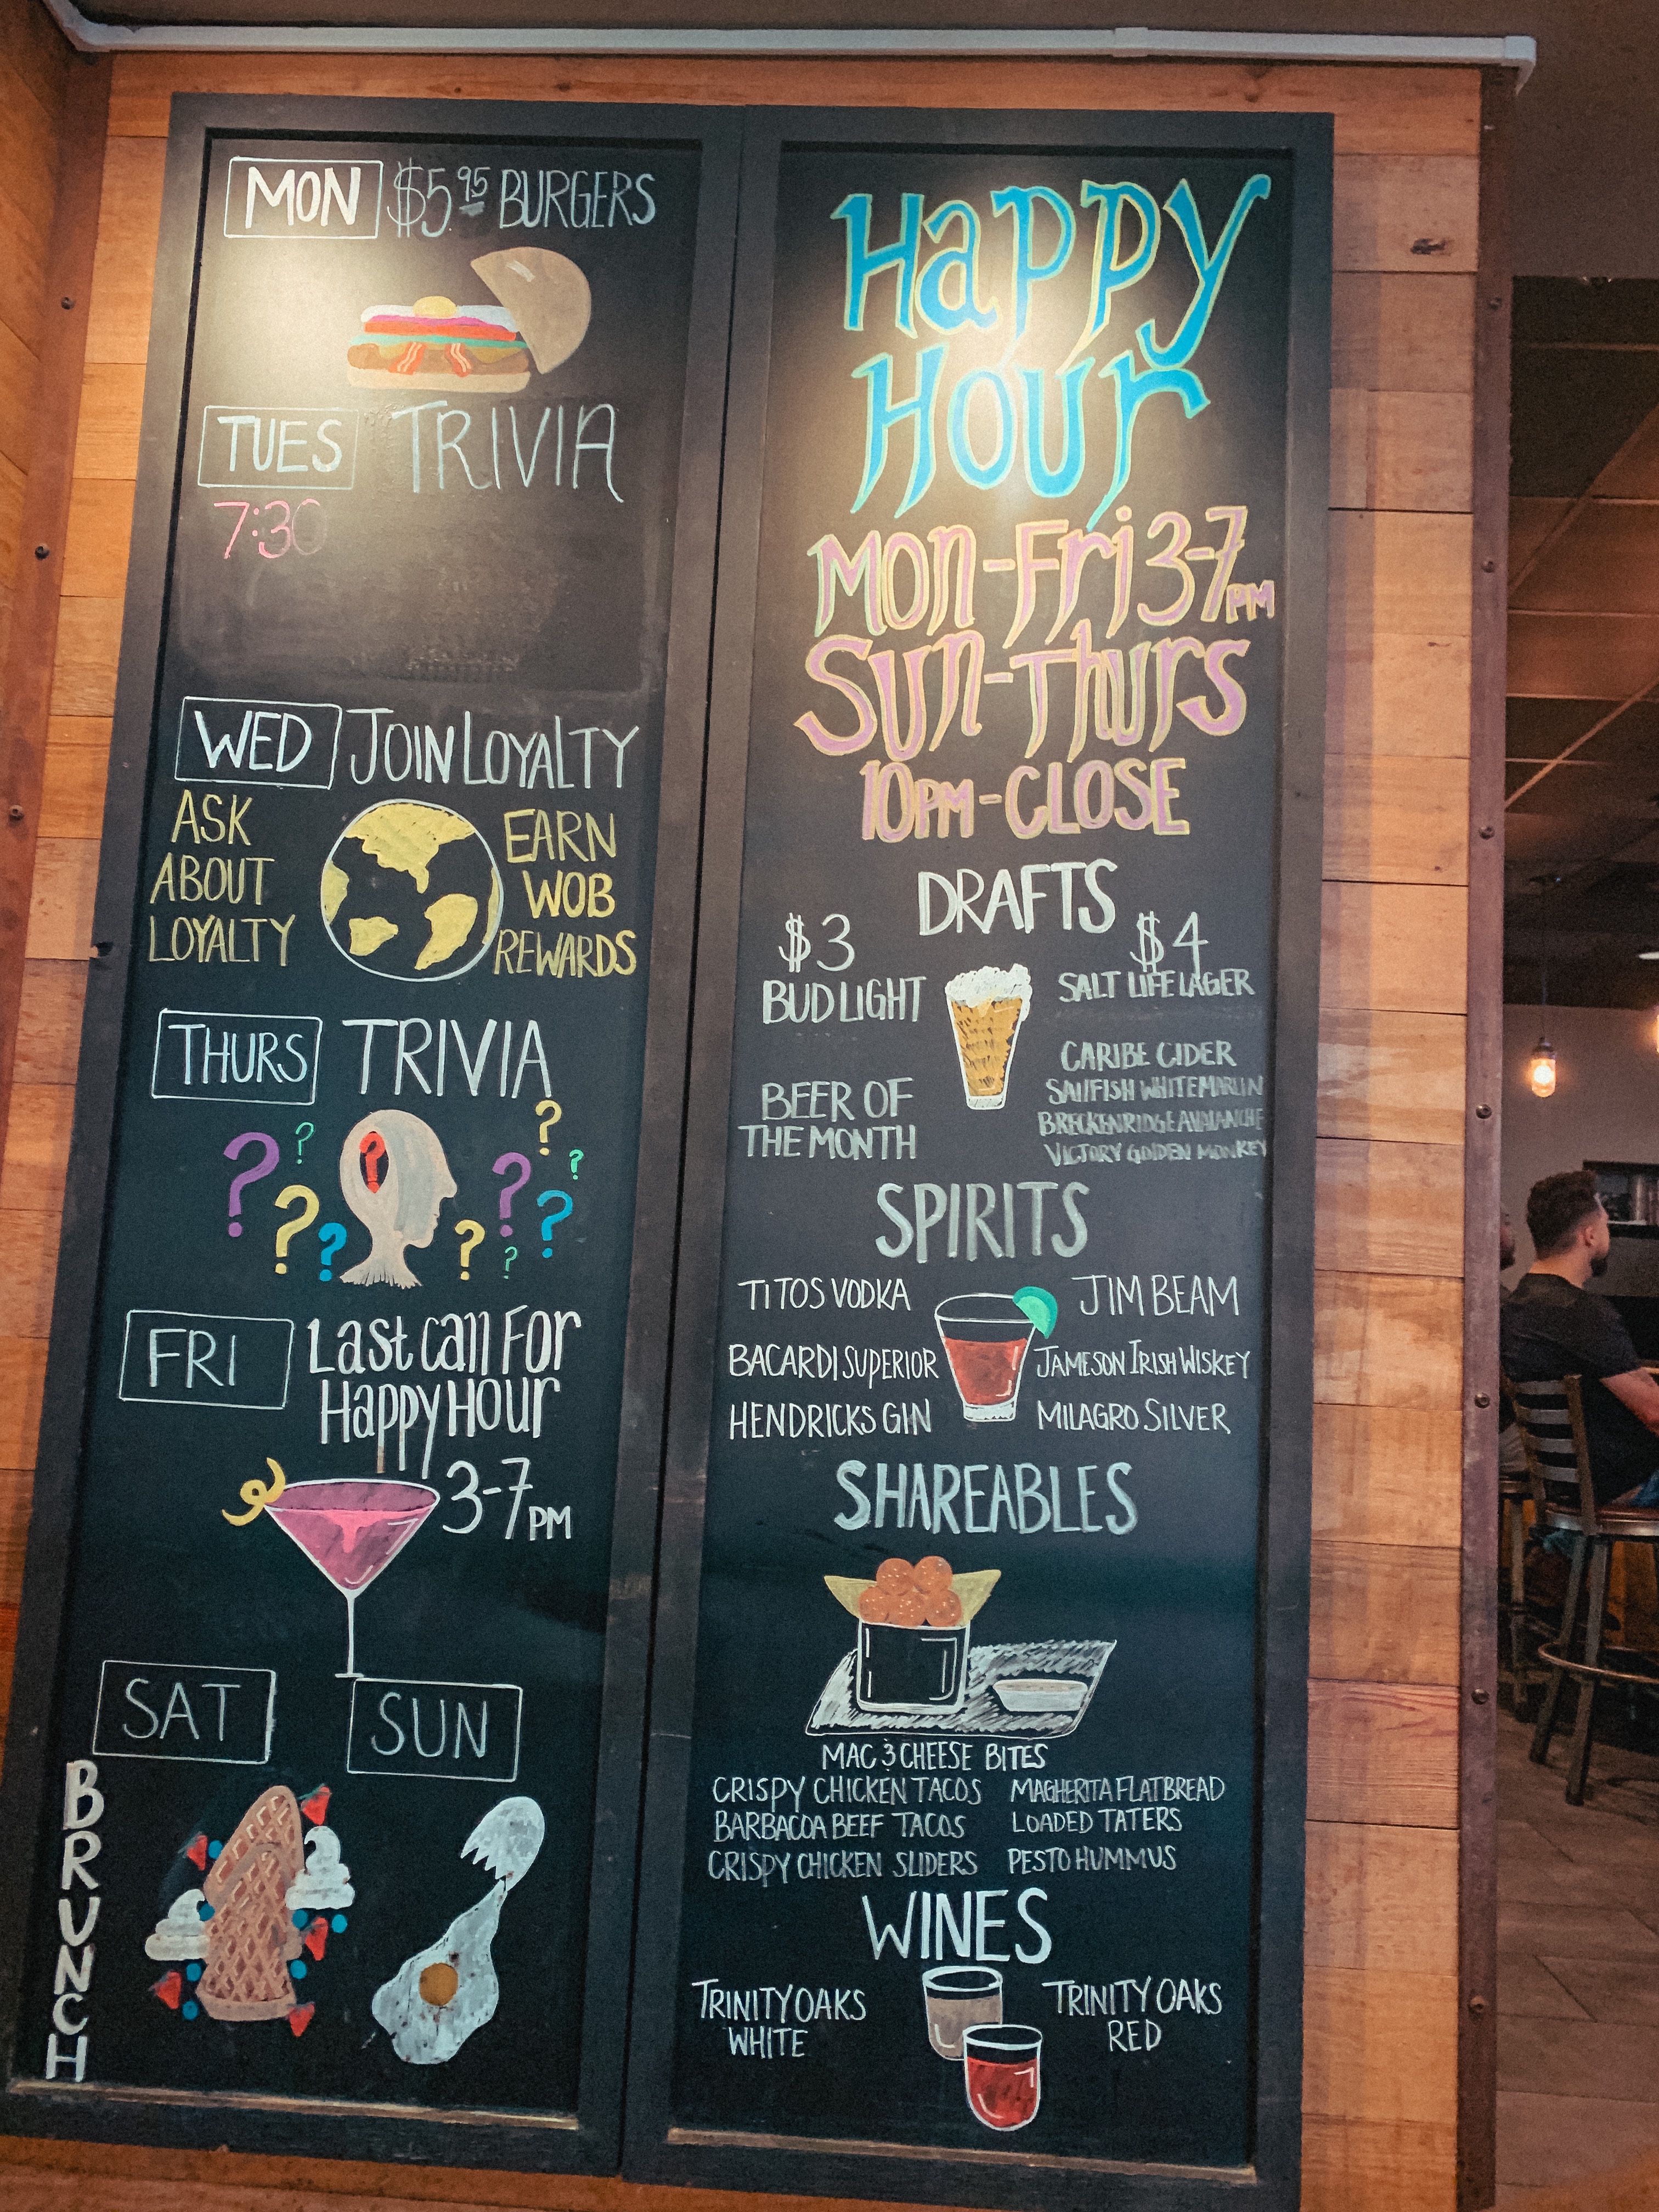 MON $5.95 BURGERS
TUES TRIVIA
7:30
WED JOIN LOYALTY
ASK
ABOUT
LOYALTY
EARN
WOB
REWARDS
THURS TRIVIA
? ? ? ? ? ? ? ? ? ? ?
FRI Last Call For
Happy Hour
3-7PM
SAT SUN
BRUNCH
Happy
Hour
Mon-Fri 3-7PM
Sun-Thurs
10PM-CLOSE
DRAFTS
$3
BUD LIGHT
BEER OF
THE MONTH
$4
SALT LIFE LAGER
CARIBE CIDER
SAILFISH WHITE MARLIN
BRECKENRIDGE AVALANCHE
VICTORY GOLDEN MONKEY
SPIRITS
TITOS VODKA
BACARDI SUPERIOR
HENDRICKS GIN
JIM BEAM
JAMESON IRISH WISKEY
MILAGRO SILVER
SHAREABLES
MAC & CHEESE BITES
CRISPY CHICKEN TACOS
BARBACOA BEEF TACOS
CRISPY CHICKEN SLIDERS
MAGHERITA FLATBREAD
LOADED TATERS
PESTO HUMMUS
WINES
TRINITY OAKS
WHITE
TRINITY OAKS
RED